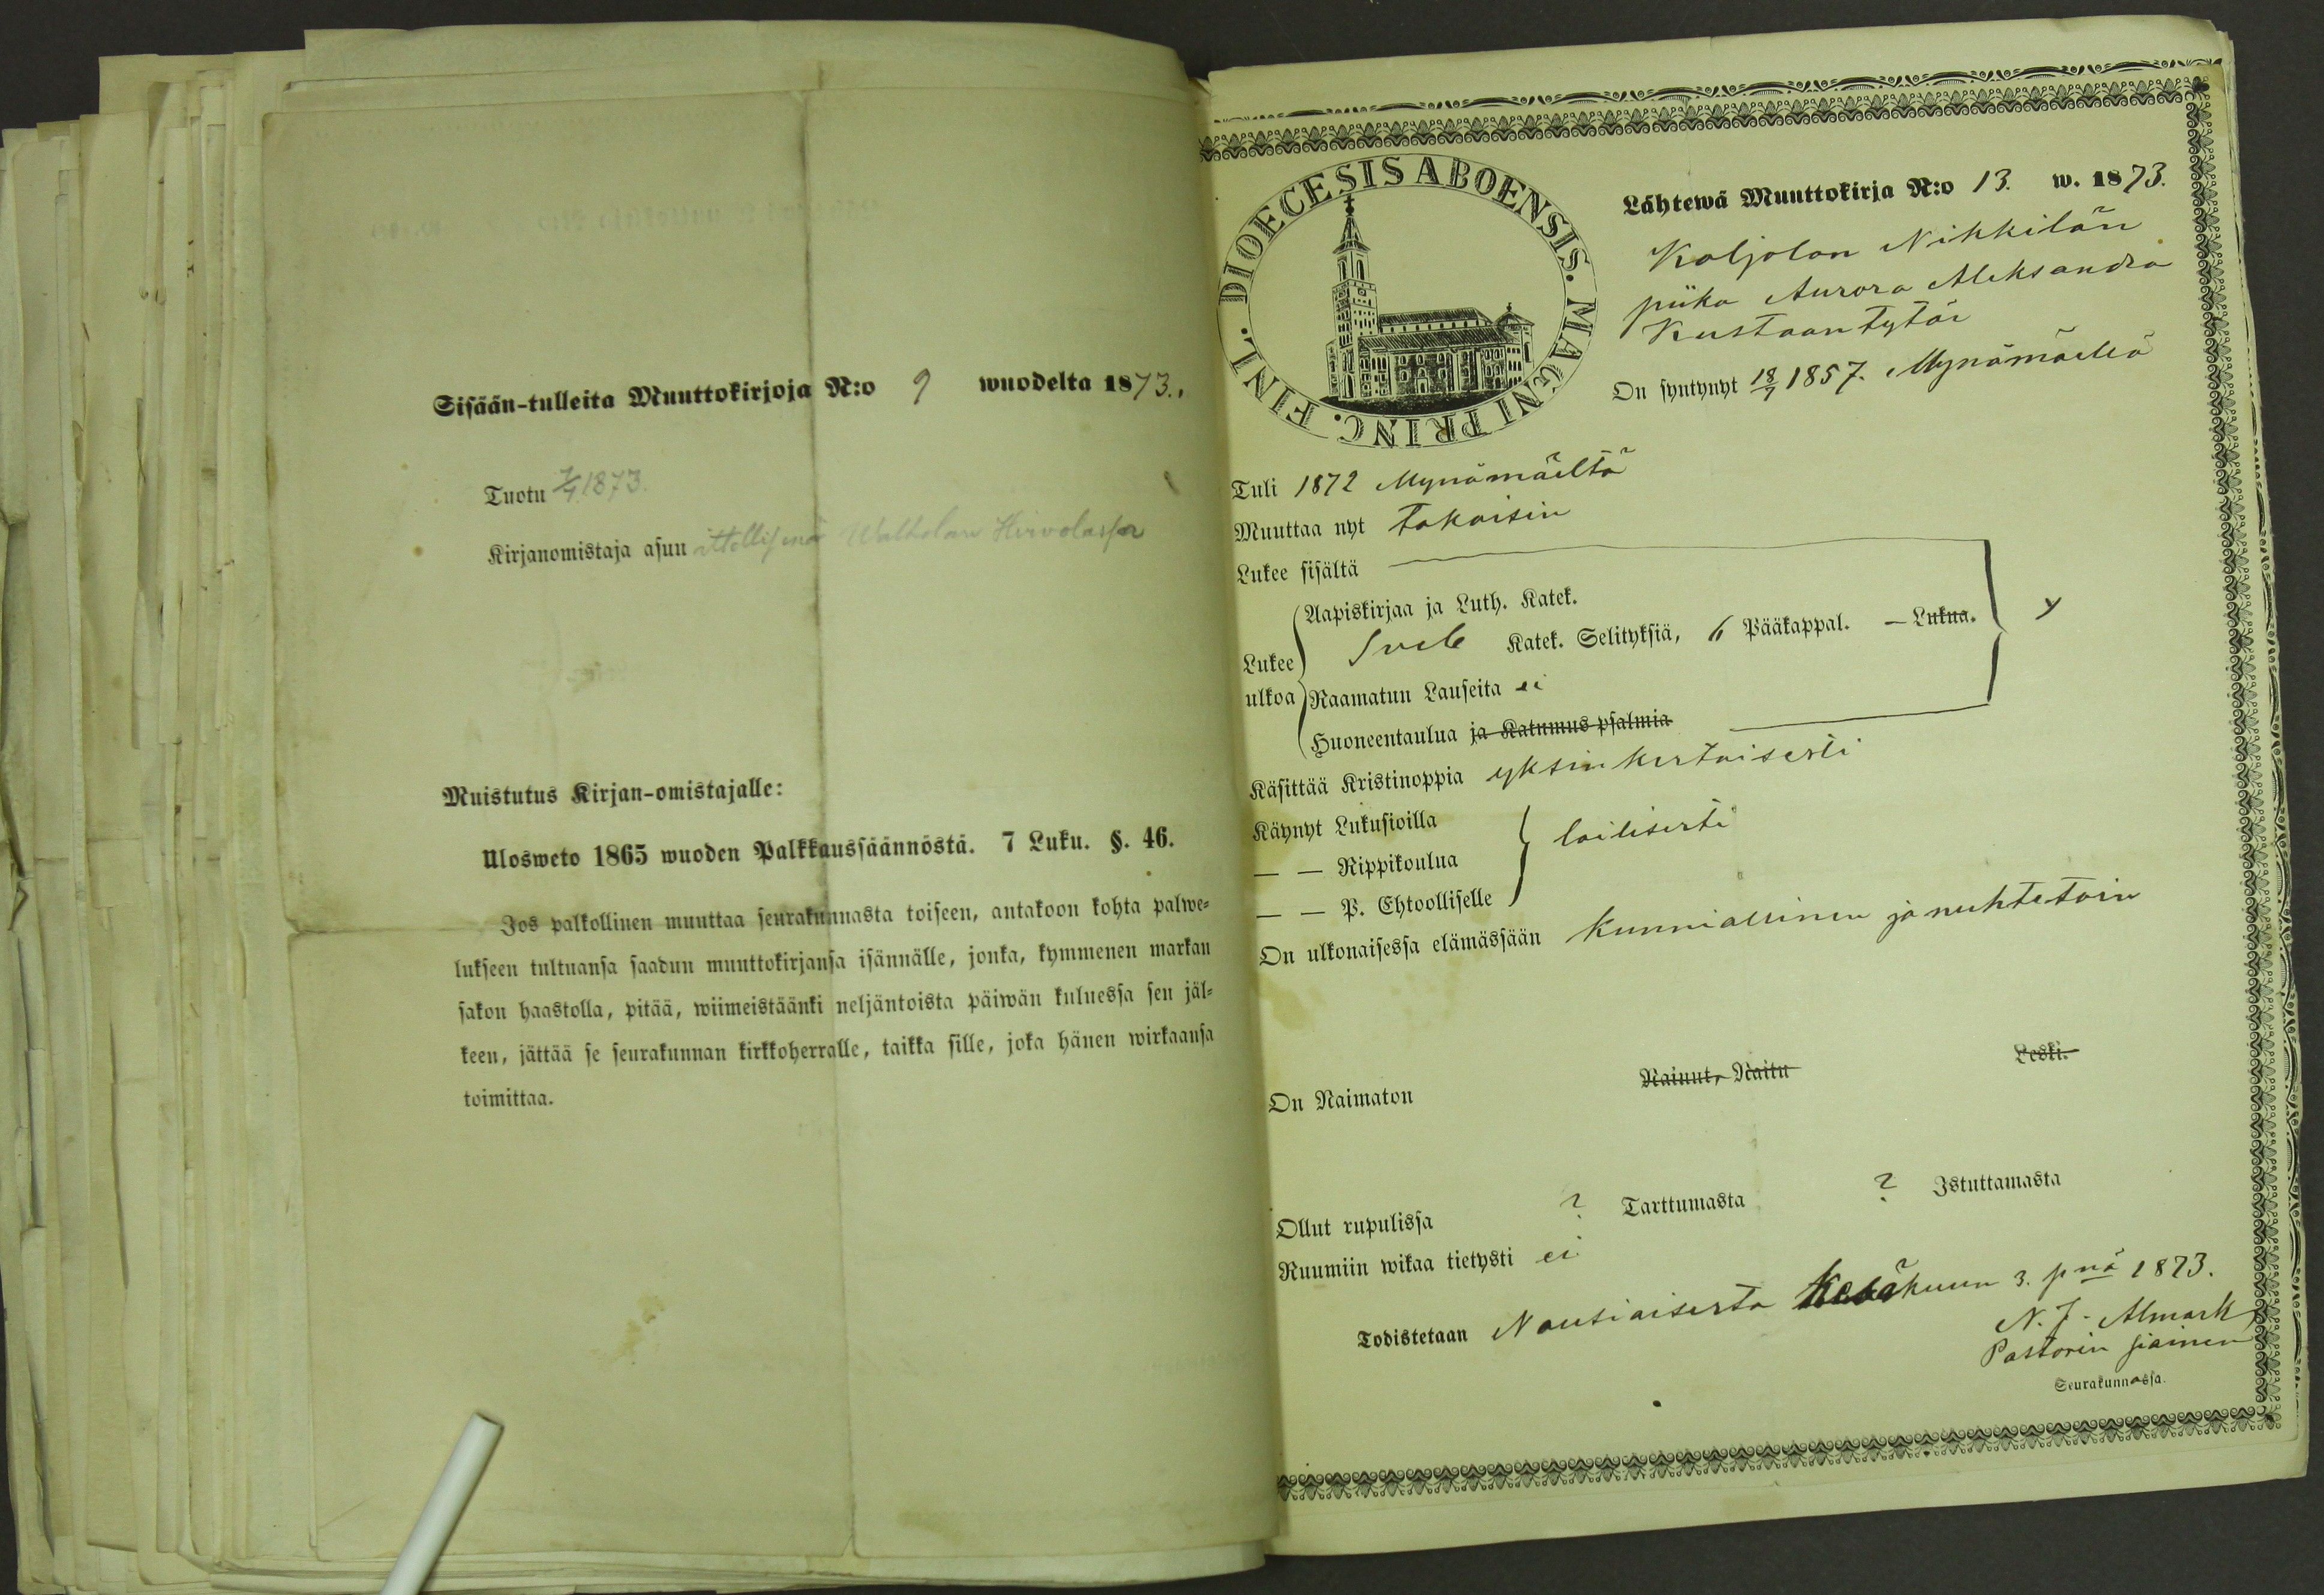 Sisään-tulleita Muuttokirjoja N:o 9 wuodelta 1873.
Tuotu 7/7 1873.
Kirjanomistaja asun ittellisenä
Muistutus Kirjan-omistajalle:
Ulosweto 1865 wuoden Palkkaussäännöstä. 7 Luku. §. 46.
Jos palkollinen muuttaa seurakunnasta toiseen, antakoon kohta palwe-
lukseen tultuansa saadun muuttokirjansa isännälle, jonka, kymmenen markan
sakon haastolla, pitää, wiimeistäänki neljäntoista päiwän kuluessa sen jäl-
keen, jättää se seurakunnan kirkkoherralle, taikka sille, joka hänen wirkaansa
toimittaa.
DIOECESIS ABOENSIS. MAGNI PRINC. FINL.
Lähtewä Muuttokirja N:o 13. w. 1873.
Koljolan Nikkilän
piika Aurora Aleksandra
Kustaantytär
On syntynyt 18/7 1857. Mynämäellä
Tuli 1872 Mynämäeltä
Muuttaa nyt takaisin
Lukee sisältä
Aapiskirjaa ja Luth. Katek.
Lukee Sveb Katek. Selityksiä, 6 Pääkappal. — Lukua.
ulkoa Raamatun Lauseita ei
Huoneentaulua ja Katumus psalmia
Käsittää Kristinoppia yksinkertaisesti
Käynyt Lukusioilla
— — Rippikoulua laillisesti
— — P. Ehtoolliselle
On ulkonaisessa elämässään kunniallinen ja nuhtetoin
On Naimaton Nainut, Naitu Leski.
Ollut rupulissa ? Tarttumasta ? Istuttamasta
Ruumiin wikaa tietysti ei
Todistetaan Nousiaisista Kesäkuun 3. pnä 1873.
N. J. Almark
Pastorin siainen
Seurakunnassa.